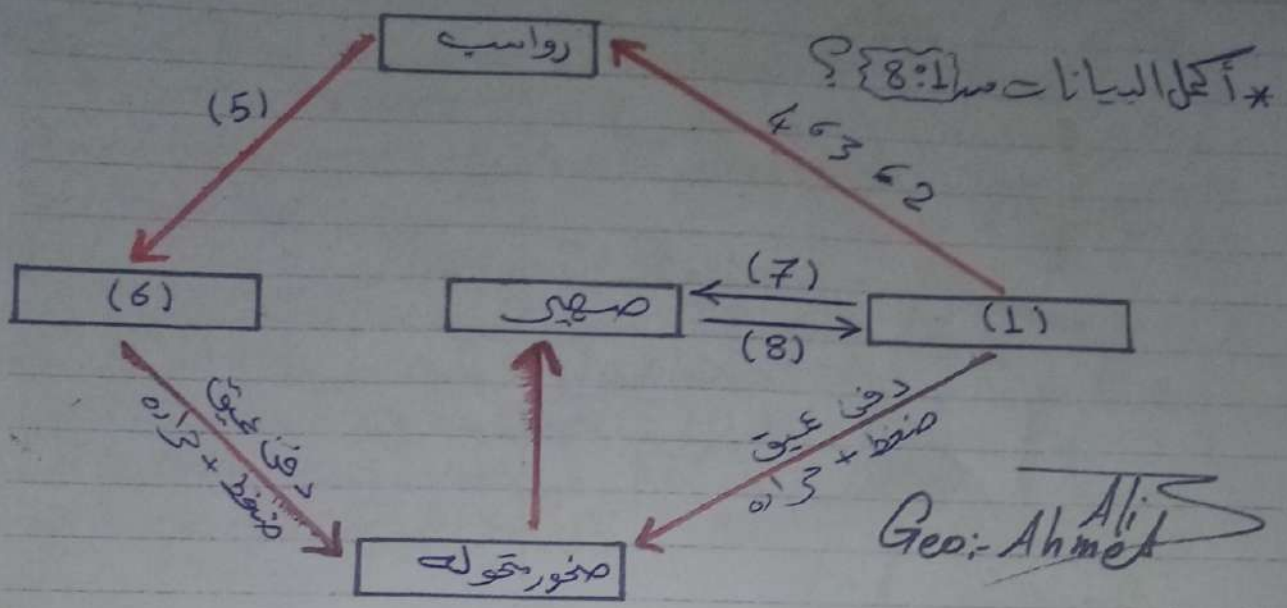 * أكمل البيانات من {8:1} ؟
رواسب
(5)
2 ، 3 ، 4
(6)
صهير
(7)
(8)
(1)
دفن عميق
ضغط + حراره
دفن عميق
ضغط + حراره
صخور متحوله
Geo:- Ahmed Ali